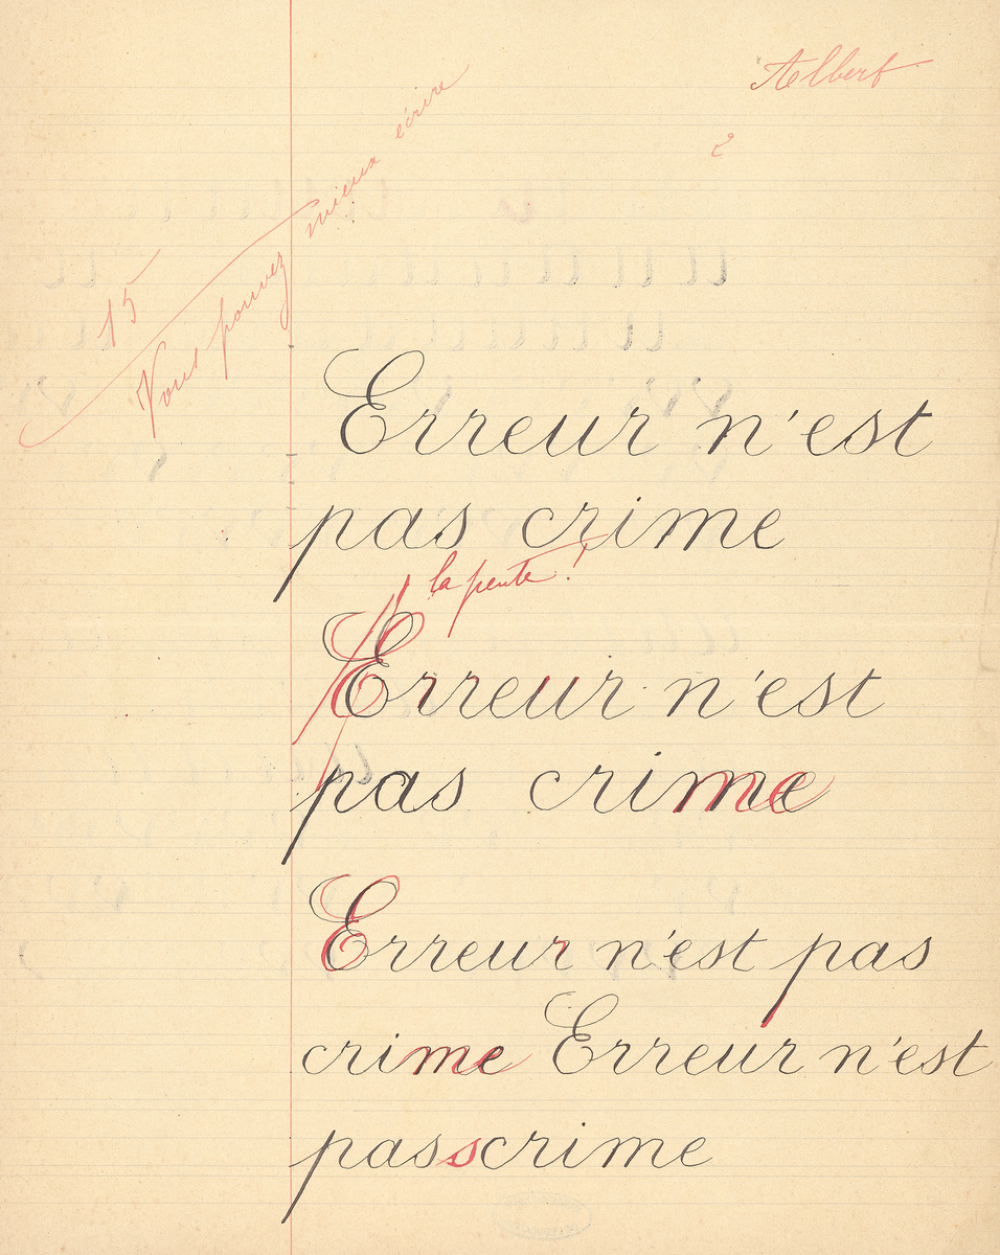 Albert
2
15
Vous pouvez mieux écrire
Erreur n'est
pas crime
la pente !
Erreur n'est
pas crime
Erreur n'est pas
crime Erreur n'est
passcrime